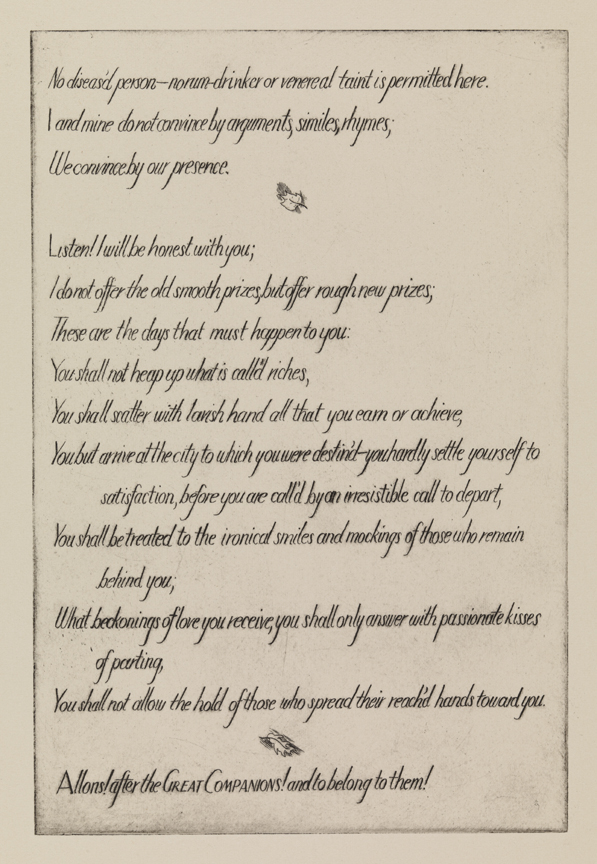 No diseas'd person—no rum-drinker or venereal taint is permitted here.
I and mine do not convince by arguments, similes, rhymes;
We convince by our presence.
Listen! I will be honest with you;
I do not offer the old smooth prizes, but offer rough new prizes;
These are the days that must happen to you:
You shall not heap up what is call'd riches,
You shall scatter with lavish hand all that you earn or achieve,
You but arrive at the city to which you were destin'd—you hardly settle yourself to
satisfaction, before you are call'd by an irresistible call to depart,
You shall be treated to the ironical smiles and mockings of those who remain
behind you;
What beckonings of love you receive, you shall only answer with passionate kisses
of parting,
You shall not allow the hold of those who spread their reach'd hands toward you.
Allons! after the GREAT COMPANIONS! and to belong to them!